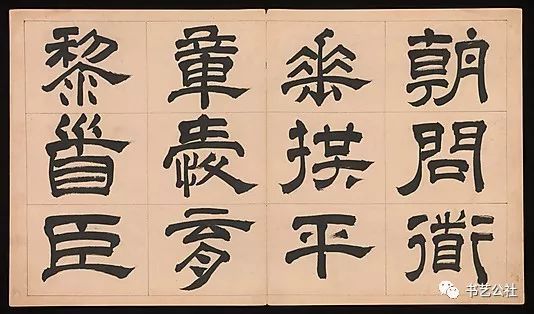 朝問衟
垂拱平
章愛育
黎首臣
书艺公社